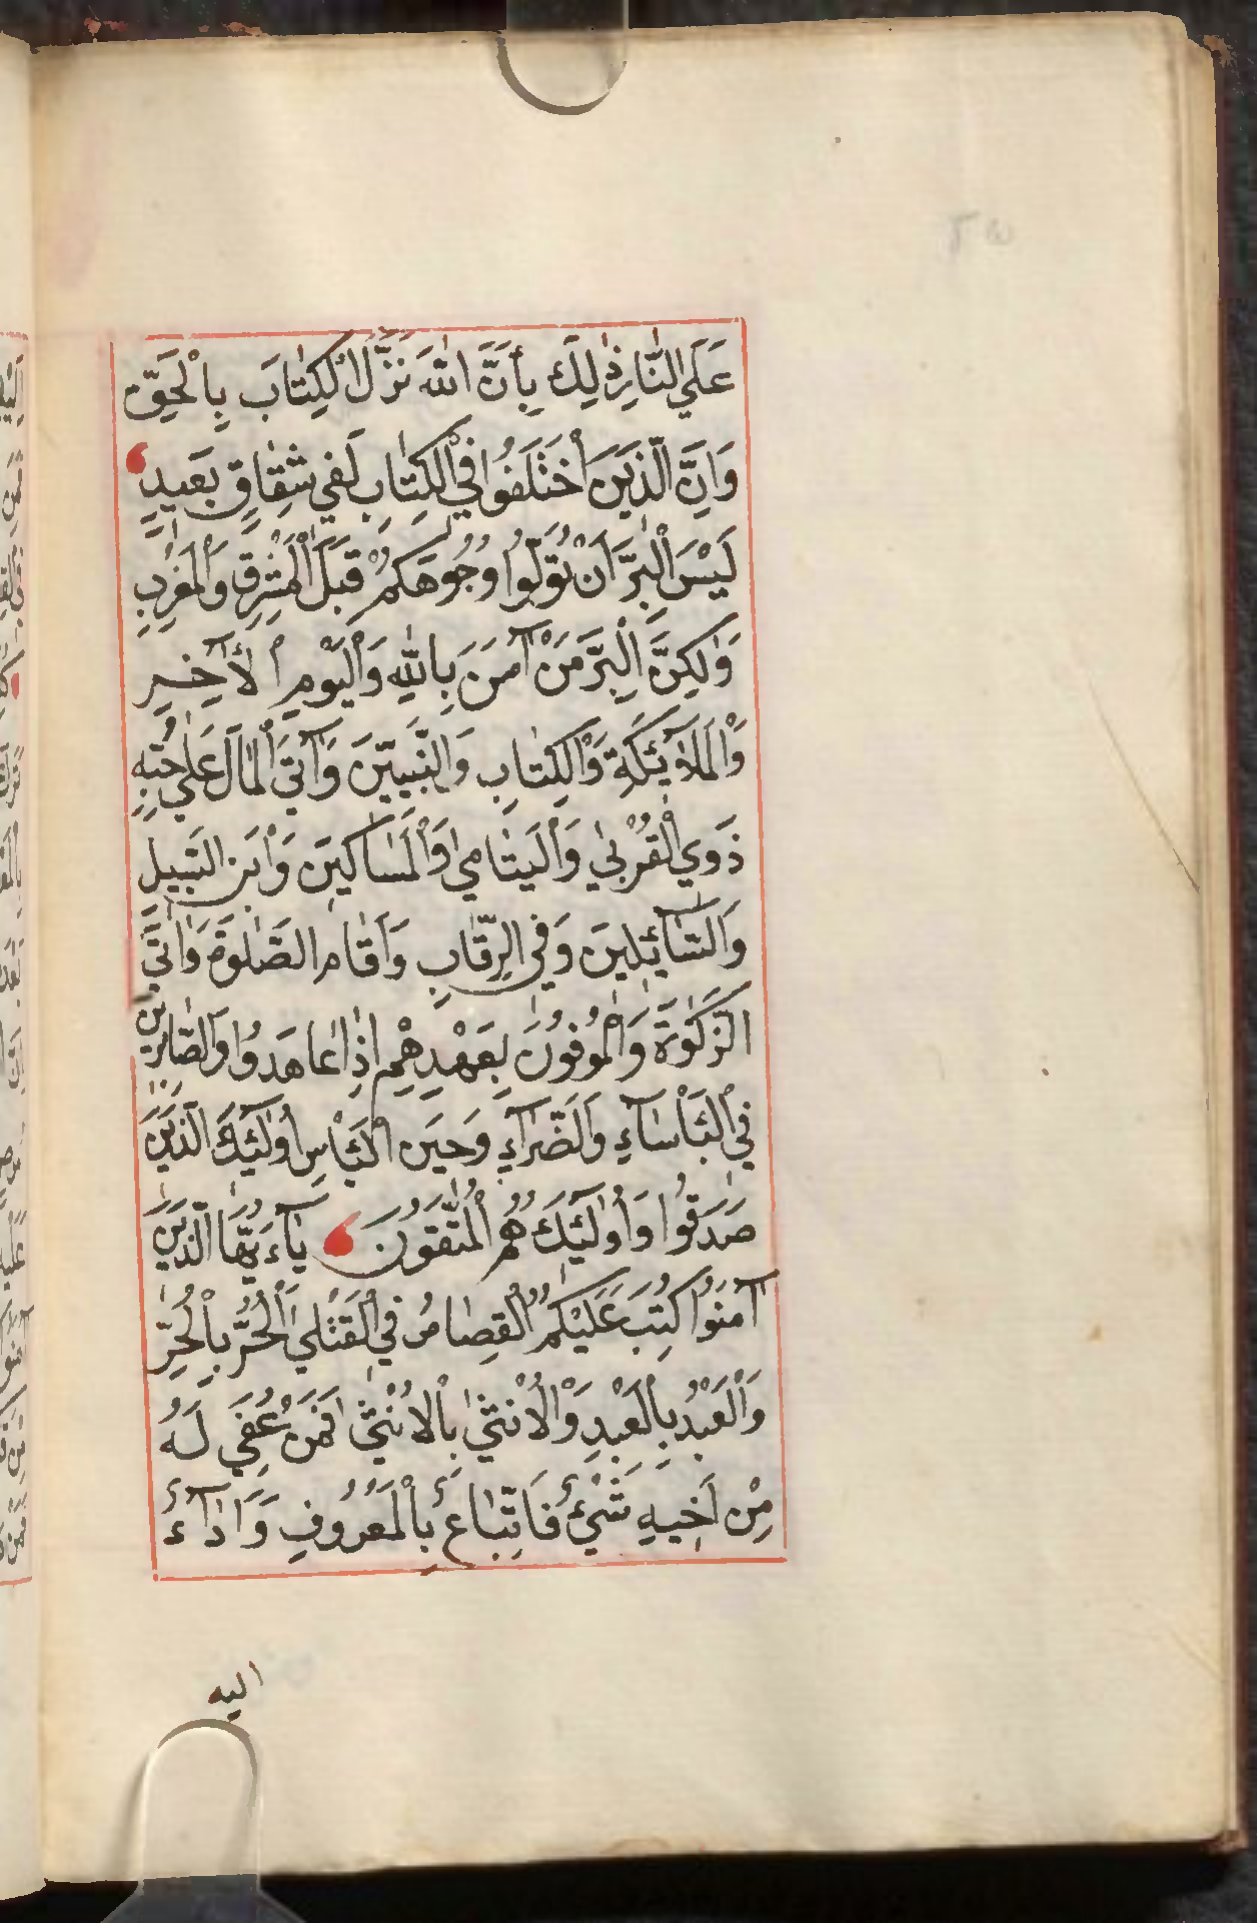 عَلَي النَّارِ ذٰلِكَ بِأَنَّ اللّٰهَ نَزَّلَ الْكِتَابَ بِالْحَقِّ
وَاِنَّ الَّذِيَنَ أخْتَلَفُوا فِي الْكِتٰابِ لَفي شِقٰاقٍ بَعيدٍ
لَيْسَ الْبِرَّ اَنْ تُوَلُّوا وُجُوهَكُمْ قِبَلَ الْمَشْرِقِ وَالْمَغْرِبِ
وَلٰكِنَّ الْبِرَّ مَنْ آمَنَ بِاللّٰهِ وَالْيَوْمِ الْأٓخِرِ
وَالْمَلآئِكَةِ وَالْكِتٰابِ وَالنَّبِيّيَن وَآتَي الْمَالَ عَلٰي حُبِّهِ
ذَوِي الْقُرْبٰي وَالْيَتٰامٰي وَالْمَسَاكيَن وَابْنَ السَّبيلِ
وَالسَّآئِليَن وَفِي الرِّقٰابِ وَاَقٰامَ الصَّلٰوةَ وَاٰتَي
الزَّكٰوةَ وَالْمُوفُونَ بِعَهْدِهِمْ اِذٰا عٰاهَدُوا وَالصّٰابِريَن
فِي الْبَأْسَآءِ وَالضَّرَآءِ وَحيَن الْبَأْسِ أُولٰٓئِكَ الَّذيَن
صَدَقُوا وَأُولٰٓئِكَ هُمُ الْمُتَّقُونَ يٰآءَيُّهَا الَّذيَن
آمَنُوا كُتِبَ عَلَيْكُمُ الْقِصٰاصُ فِي الْقَتْلٰي اَلْحُرُّ بِالْحُرِّ
وَالْعَبْدُ بِالْعَبْدِ وَالْأُنْثٰي بِالْاُنْثٰي فَمَنْ عُفِيَ لَهُ
مِنْ اَخيهِ شَيْءٌ فَاتِّبَاعٌ بِالْمَعْرُوفِ وَاَدٰآءٌ
اليه